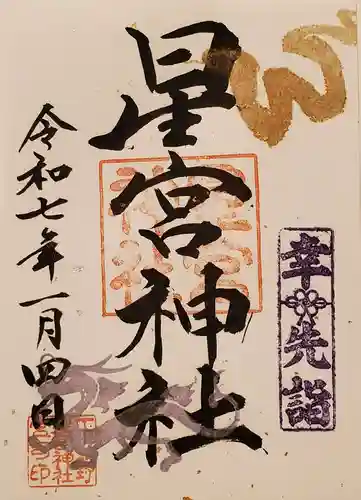 幸先詣
星宮神社
令和七年一月四日